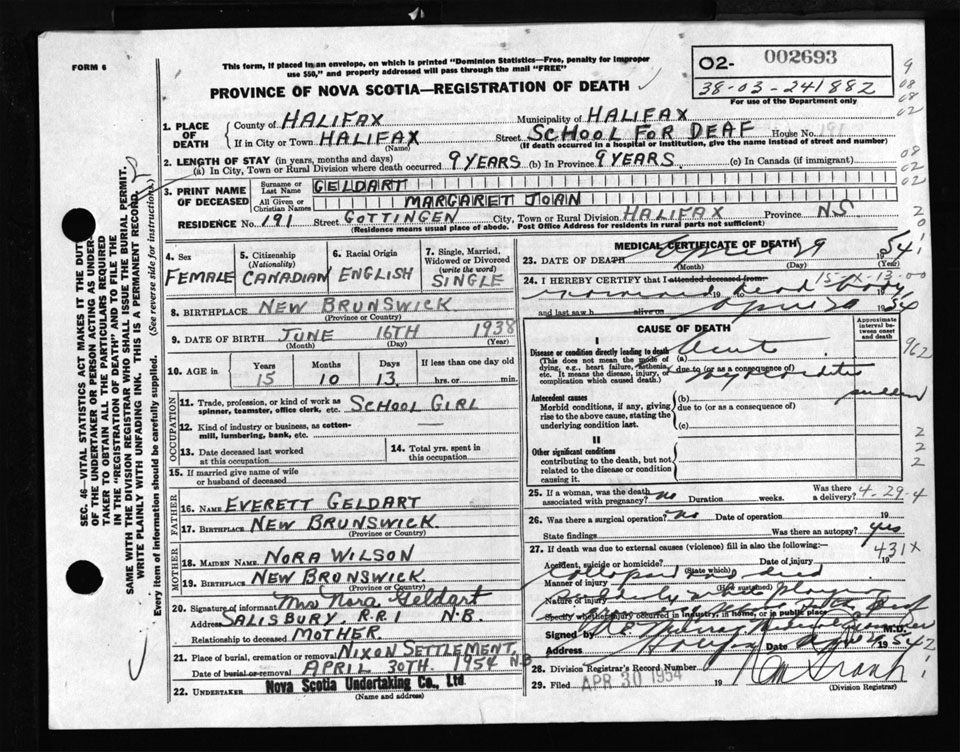 FORM 6
This form, if placed in an envelope, on which is printed "Dominion Statistics—Free, penalty for improper
use $50," and properly addressed will pass through the mail "FREE"
PROVINCE OF NOVA SCOTIA—REGISTRATION OF DEATH
02- 002693
38-03-241882
For use of the Department only
9
08
08
02
1. PLACE OF DEATH
County of HALIFAX Municipality of HALIFAX
If in City or Town HALIFAX Street SCHOOL FOR DEAF House No.
(Name) (If death occurred in a hospital or institution, give the name instead of street and number)
2. LENGTH OF STAY (in years, months and days)
(a) In City, Town or Rural Division where death occurred 9 YEARS (b) In Province 9 YEARS (c) In Canada (if immigrant)
08
02
02
3. PRINT NAME OF DECEASED
Surname or Last Name GELDART
All Given or Christian Names MARGARET JOAN
RESIDENCE No. 191 Street GOTTINGEN City, Town or Rural Division HALIFAX Province N.S.
(Residence means usual place of abode. Post Office Address for residents in rural parts not sufficient)
4. Sex
FEMALE
5. Citizenship (Nationality)
CANADIAN
6. Racial Origin
ENGLISH
7. Single, Married, Widowed or Divorced (write the word)
SINGLE
8. BIRTHPLACE NEW BRUNSWICK
(Province or Country)
9. DATE OF BIRTH JUNE 16TH 1938
(Month) (Day) (Year)
10. AGE in Years Months Days If less than one day old
15 10 13 hrs. or min.
OCCUPATION
11. Trade, profession, or kind of work as
spinner, teamster, office clerk, etc. SCHOOL GIRL
12. Kind of industry or business, as cotton-
mill, lumbering, bank, etc. —
13. Date deceased last worked
at this occupation
14. Total yrs. spent in
this occupation
15. If married give name of wife
or husband of deceased
FATHER
16. Name EVERETT GELDART
17. BIRTHPLACE NEW BRUNSWICK.
(Province or Country)
MOTHER
18. MAIDEN NAME NORA WILSON
19. BIRTHPLACE NEW BRUNSWICK
(Province or Country)
20. Signature of informant Mrs Nora Geldart
Address SALISBURY, R.R 1 N.B.
Relationship to deceased MOTHER.
21. Place of burial, cremation or removal NIXON SETTLEMENT, N.B
Date of burial or removal APRIL 30TH. 1954
22. UNDERTAKER Nova Scotia Undertaking Co., Ltd.
(Name and address)
MEDICAL CERTIFICATE OF DEATH
23. DATE OF DEATH April 29 1954
(Month) (Day) (Year)
24. I HEREBY CERTIFY that I attended deceased from
15-X-13-00
dead body
and last saw h alive on 54
CAUSE OF DEATH
Approximate interval between onset and death
I
Disease or condition directly leading to death
(This does not mean the mode of
dying, e.g., heart failure, asthenia,
etc. It means the disease, injury, or
complication which caused death.)
(a) Acute
due to (or as a consequence of)
Myocarditis
962
Antecedent causes
Morbid conditions, if any, giving
rise to the above cause, stating the
underlying condition last.
(b)
due to (or as a consequence of)
(c)
II
Other significant conditions
contributing to the death, but not
related to the disease or condition
causing it.
2
2
2
25. If a woman, was the death
associated with pregnancy? no Duration weeks. Was there a delivery? 4-29-4
26. Was there a surgical operation? no Date of operation 19
State findings Was there an autopsy? yes
27. If death was due to external causes (violence) fill in also the following:—
431X
Accident, suicide or homicide? Date of injury 19
(State which)
Collapsed and died
Manner of injury
(How sustained)
Nature of injury
Specify whether injury occurred in industry, in home, or in public place
Signed by M.D.
Address Halifax Date 1954
28. Division Registrar's Record Number
29. Filed APR 30 1954 19
(Division Registrar)
SEC. 46—VITAL STATISTICS ACT MAKES IT THE DUTY
OF THE UNDERTAKER OR PERSON ACTING AS UNDER-
TAKER TO OBTAIN ALL THE PARTICULARS REQUIRED
IN THE "REGISTRATION OF DEATH" AND TO FILE THE
SAME WITH THE DIVISION REGISTRAR WHO SHALL ISSUE THE BURIAL PERMIT.
WRITE PLAINLY WITH UNFADING INK. THIS IS A PERMANENT RECORD.
Every item of information should be carefully supplied. (See reverse side for instructions.)